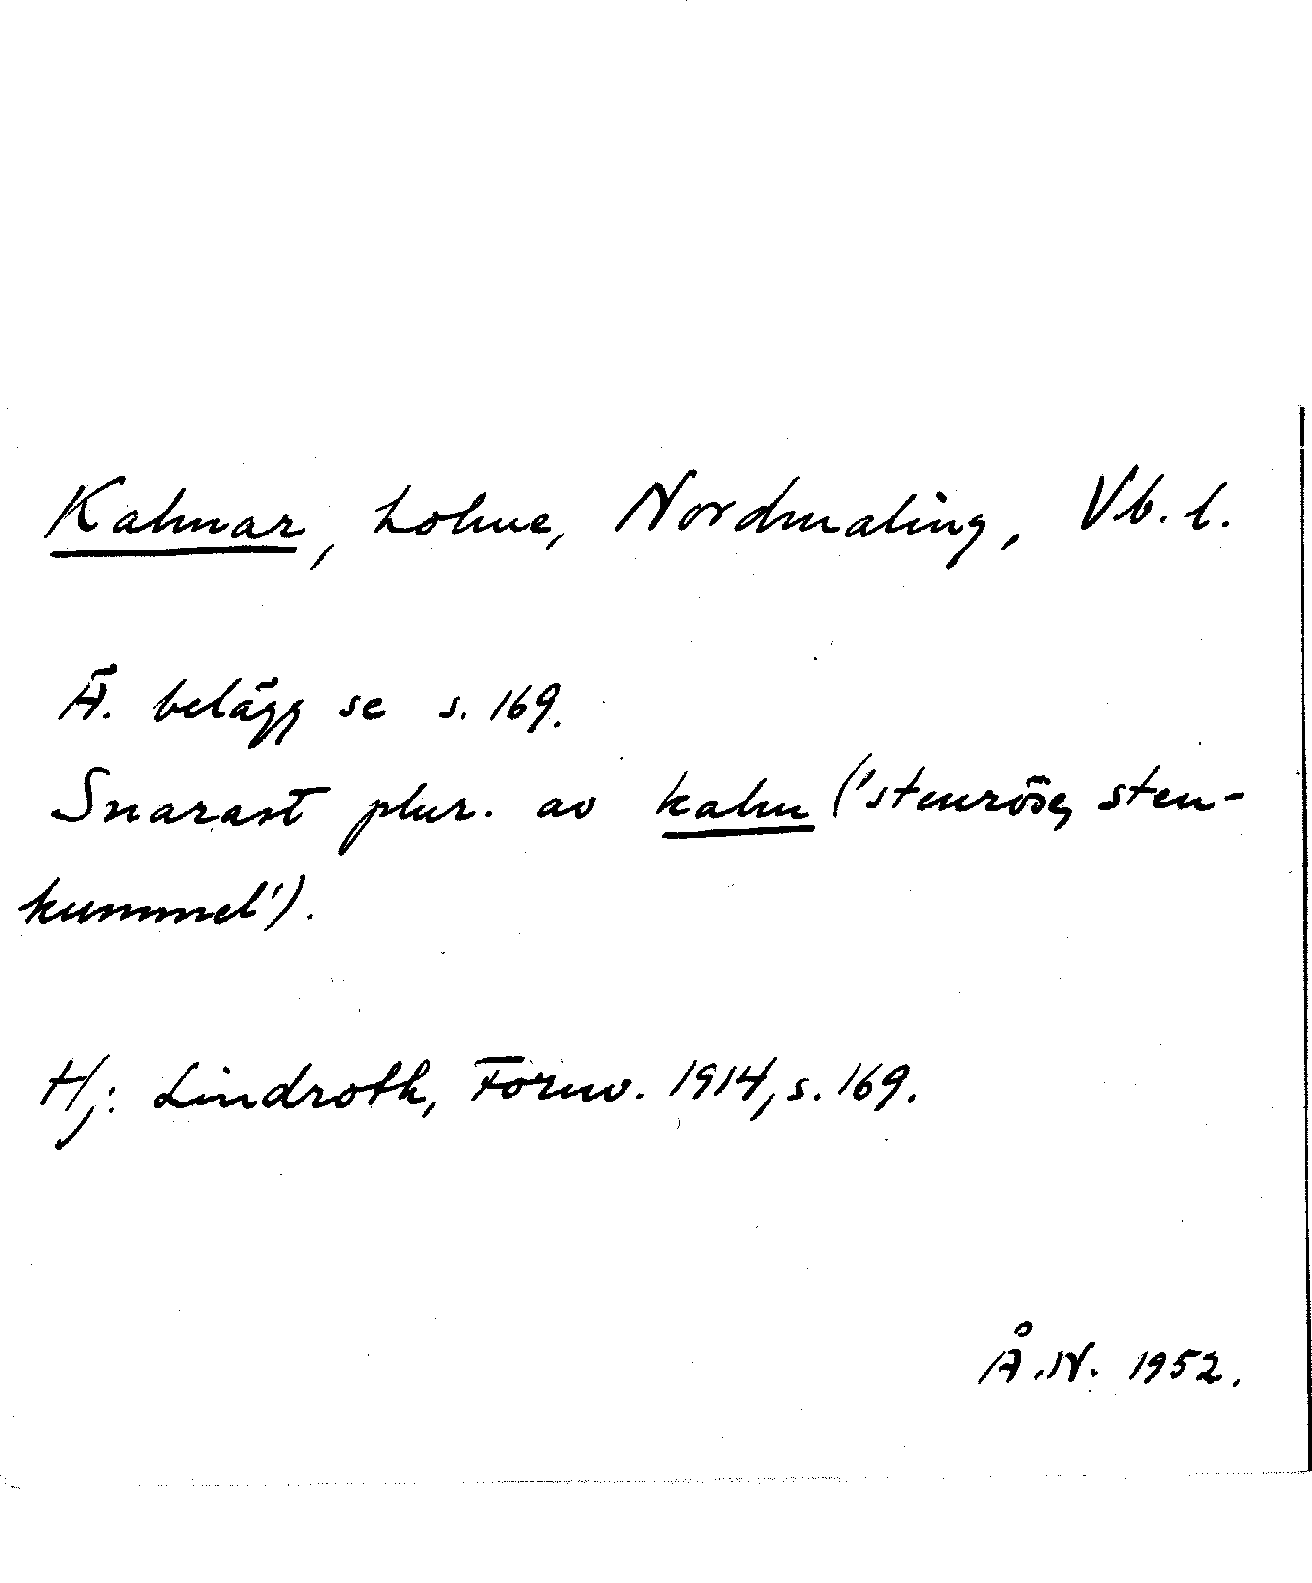 Kalmar, holme, Nordmaling, Vb. l.
Ä. belägg se s. 169.
Snarast plur. av kalm ('stenröse, sten-
kummel').
Hj: Lindroth, Fornv. 1914, s. 169.
Å.N. 1952.